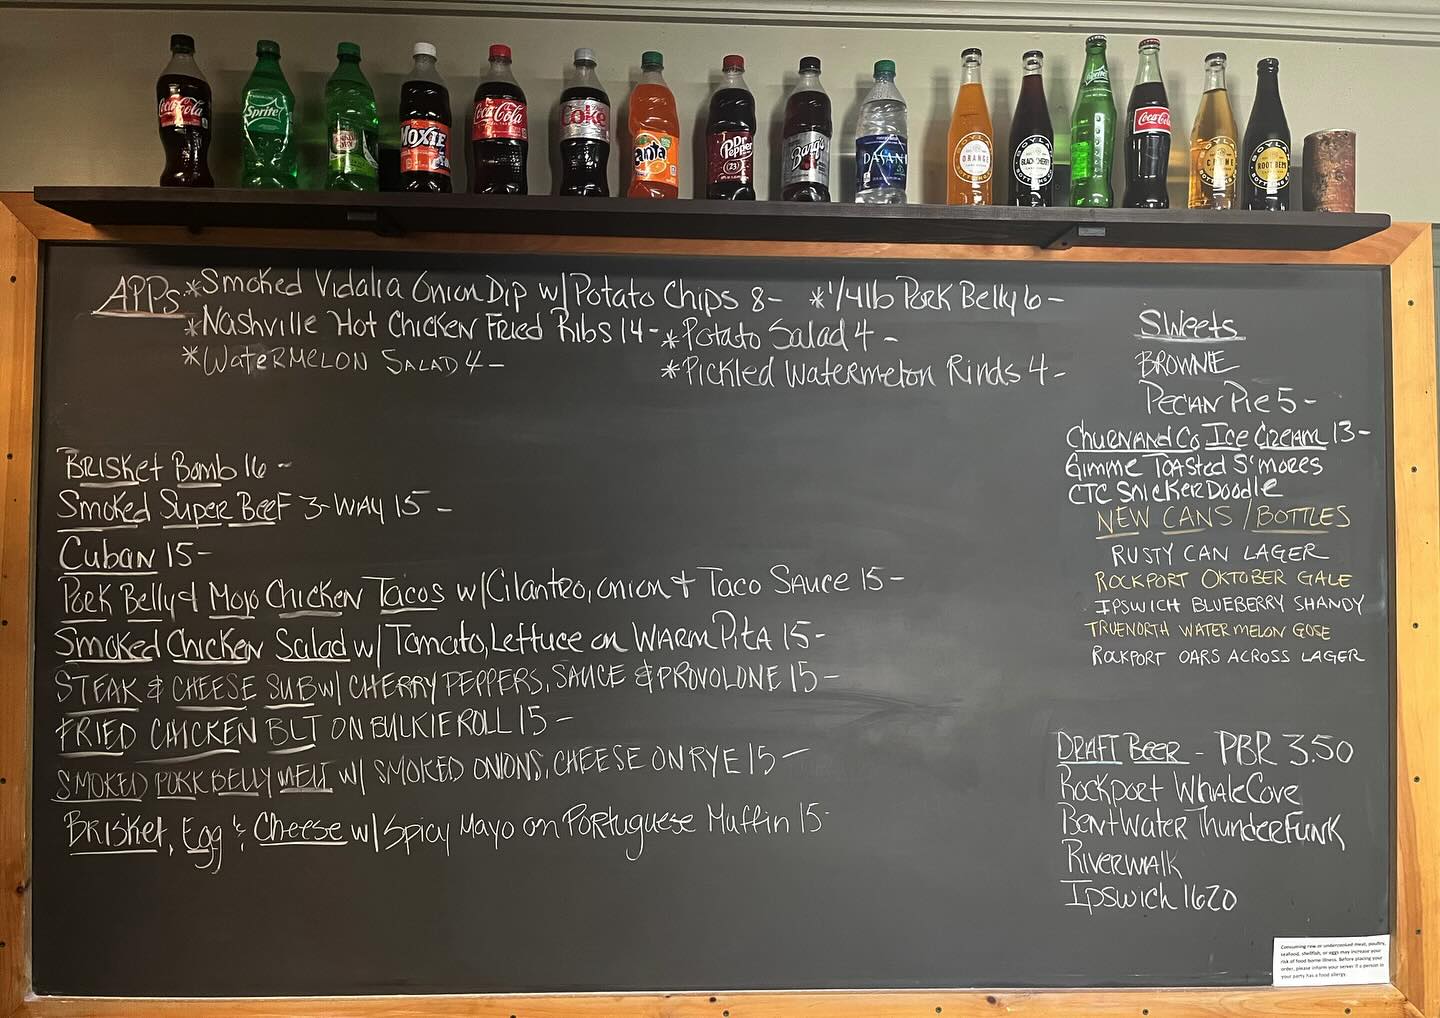 Coca-Cola
Sprite
CANADA DRY
MOXIE
Coca-Cola
DIET Coke
Fanta
Dr Pepper
23
Barq's
DASANI
BOYLAN ORANGE BOTTLING CO
BOYLAN BLACK CHERRY BOTTLING CO
Sprite
Coca-Cola
BOYLAN CREME BOTTLING CO
BOYLAN ROOT BEER BOTTLING CO
APPs *Smoked Vidalia Onion Dip w/Potato Chips 8- *1/4lb Pork Belly 6-
*Nashville Hot Chicken Fried Ribs 14- *Potato Salad 4 -
*WATERMELON SALAD 4- *Pickled Watermelon Rinds 4-
Brisket Bomb 16 -
Smoked Super Beef 3-WAY 15 -
Cuban 15-
Pork Belly & Mojo Chicken Tacos w/Cilantro, onion & Taco Sauce 15 -
Smoked Chicken Salad w/Tomato, Lettuce on WARM PitA 15-
STEAK & CHEESE SUB w/ CHERRY PEPPERS, SAUCE & PROVOLONE 15-
FRIED CHICKEN BLT ON BULKIE ROLL 15 -
SMOKED PORK BELLY MELT w/ SMOKED ONIONS, CHEESE ON RYE 15 -
Brisket, Egg & Cheese w/Spicy Mayo on Portuguese Muffin 15-
Sweets
BROWNIE
PECAN Pie 5 -
Churn and Co Ice Cream 13-
Gimme Toasted S'mores
CTC SnickerDoodle
NEW CANS / BOTTLES
RUSTY CAN LAGER
ROCKPORT OKTOBER GALE
IPSWICH BLUEBERRY SHANDY
TRUENORTH WATERMELON GOSE
ROCKPORT OARS ACROSS LAGER
DRAFT BEER - PBR 3.50
Rockport Whale Cove
BentWater ThunderFunk
Riverwalk
Ipswich 1620
Consuming raw or undercooked meat, poultry,
seafood, shellfish, or eggs may increase your
risk of food borne illness. Before placing your
order, please inform your server if a person in
your party has a food allergy.